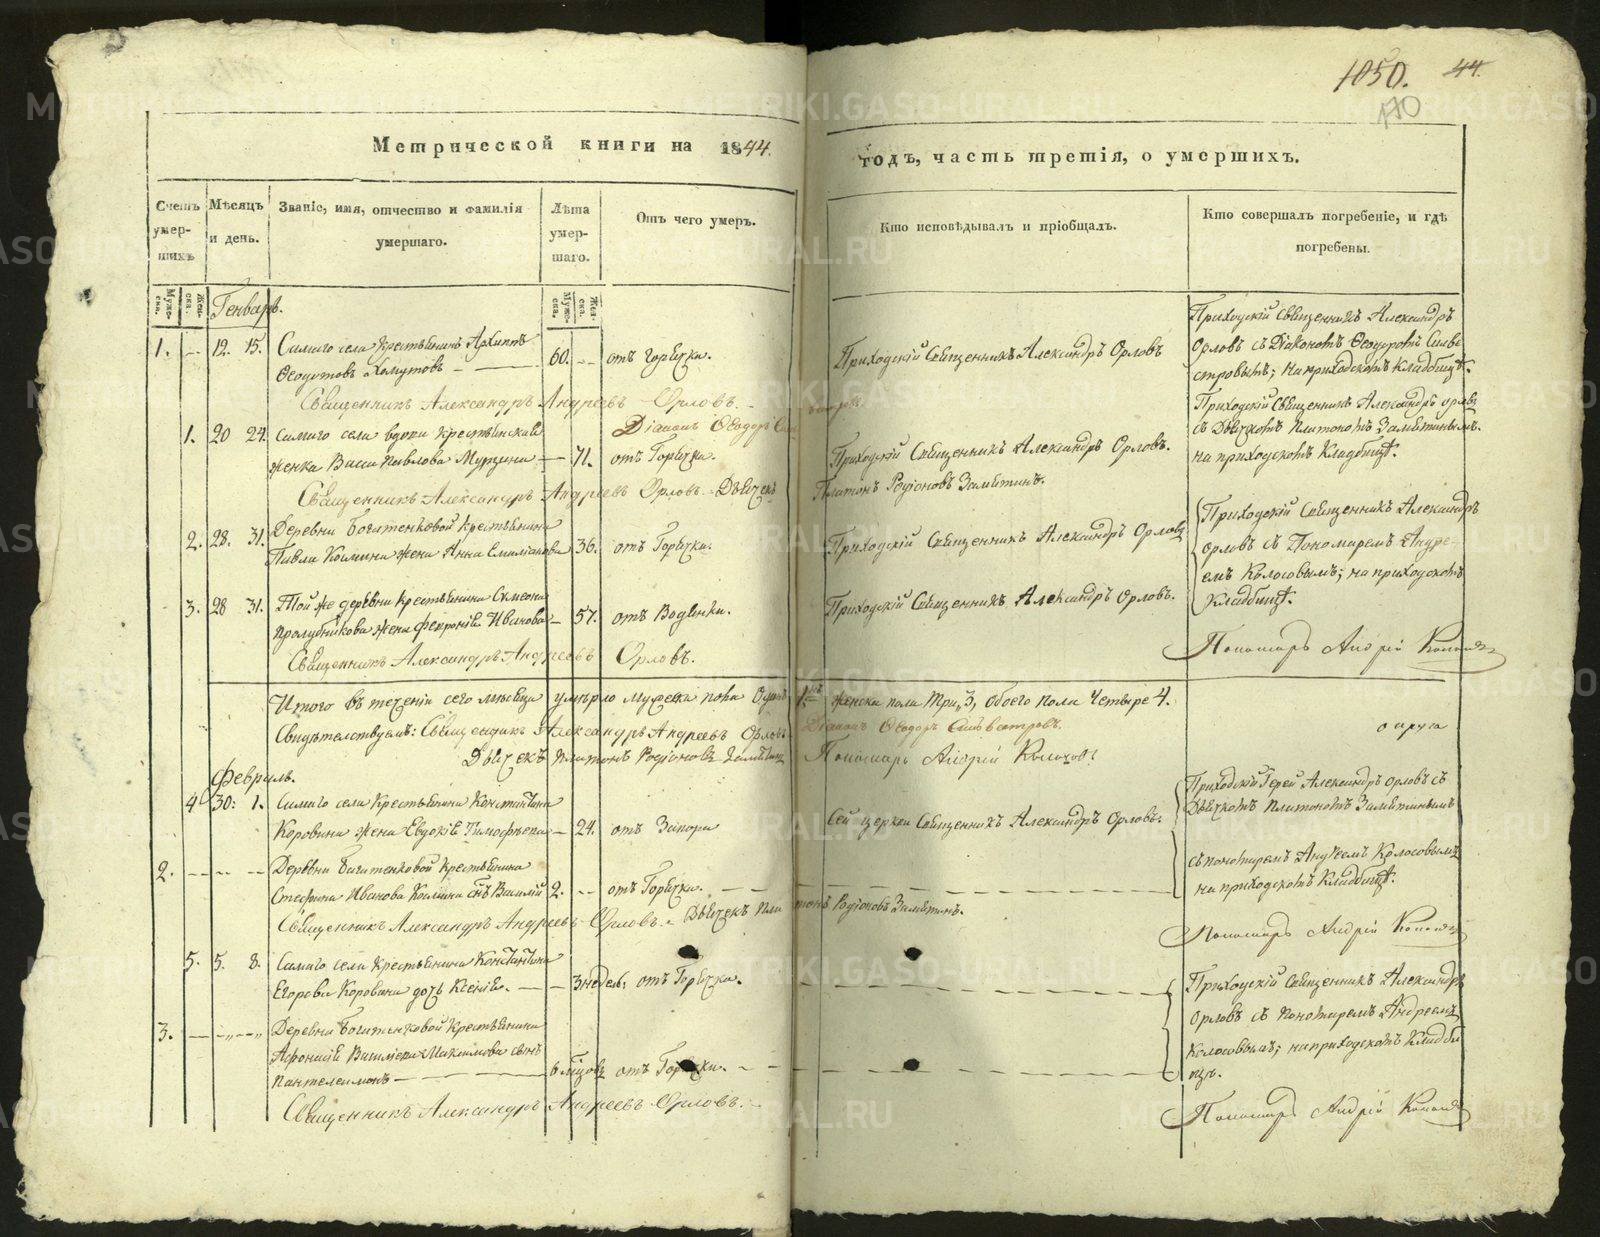 1050. 44.
170
Метрической книги на 1844. годъ, часть третія, о умершихъ.
Счетъ умер-шихъ
Мѣсяцъ и день.
Званіе, имя, отчество и фамилія умершаго.
Лѣта умер-шаго.
Отъ чего умеръ.
Кто исповѣдывалъ и пріобщалъ.
Кто совершалъ погребеніе, и гдѣ погребены.
Муже-ска.
Жен-ска.
Муже-ска.
Жен-ска.
Генварь.
1. - 12. 15. Самаго села крестьянинъ Архиппъ
Феодотовъ Хомутовъ - 60. - отъ горячки.
Приходскій Священникъ Александръ Орловъ
Приходскій Священникъ Александръ
Орловъ съ Діакономъ Феодоромъ Сильве
стровымъ; на приходскомъ кладбищѣ.
Священникъ Александръ Андреевъ Орловъ.
Діаконъ Феодоръ
1. 20 24. Самаго села вдова крестьянская
женка Васса Павлова - 71. отъ Горячки.
Приходскій Священникъ Александръ Орловъ.
Приходскій Священникъ Александръ Орловъ
съ Дьячкомъ Платономъ Замятинымъ.
на приходскомъ Кладбищѣ.
Священникъ Александръ Андреевъ Орловъ. Дьячекъ Платонъ Родіоновъ Замятинъ.
2. 28. 31. Деревни Богатенковой крестьянина
Павла Космина жена Анна Емиліанова 36. отъ Горячки.
Приходскій Священникъ Александръ Орловъ
Приходскій Священникъ Александръ
Орловъ съ Пономаремъ Андре-
емъ Колосовымъ; на приходскомъ
Кладбищѣ.
3. 28 31. Той же деревни крестьянина Симеона
Пролубникова жена Феврониѣ Иванова - 57. отъ Водянки.
Приходскій Священникъ Александръ Орловъ.
Священникъ Александръ Андреевъ Орловъ.
Пономарь Андрій Колосовъ
Итого въ теченіи сего мѣсяца умерло мужеска пола Одинъ 1. женска пола Три, 3, Обоего пола Четыре 4.
Свидѣтельствуемъ: Священникъ Александръ Андреевъ Орловъ Діаконъ Феодоръ Сильвестровъ.
Дьячекъ Платонъ Родіоновъ Замятинъ Пономарь Андрій Колосовъ
Февраль.
4 30: 1. Самаго села Крестьянина Константина
Коровина жена Евдокіѣ Тимофѣева - 24. отъ Запора
Сей церкви Священникъ Александръ Орловъ.
Приходскій Іерей Александръ Орловъ съ
Дьячкомъ Платономъ Замятинымъ
съ пономаремъ Андреемъ Колосовымъ
на приходскомъ Кладбищѣ.
2. Деревни Богатенковой Крестьянина
Стефана Иванова Космина сынъ Василій 2. - отъ Горячки.
Священникъ Александръ Андреевъ Орловъ. Дьячекъ Платонъ Родіоновъ Замятинъ.
Пономарь Андрій Колосовъ
5. 5. 8. Самаго села крестьянина Константина
Егорова Коровина дочь Ксеніѣ. - 3 недель. отъ Горячки.
Приходскій Священникъ Александръ
Орловъ съ Пономаремъ Андреемъ
Колосовымъ; на приходскомъ Кладби
щѣ.
3. Деревни Богатенковой Крестьянина
Афонасіѣ Васильева Максимова сынъ
Пантелеимонъ - 6 мѣсяцовъ отъ Горячки.
Священникъ Александръ Андреевъ Орловъ.
Пономарь Андрій Колосовъ
METRIKI.GASO-URAL.RU